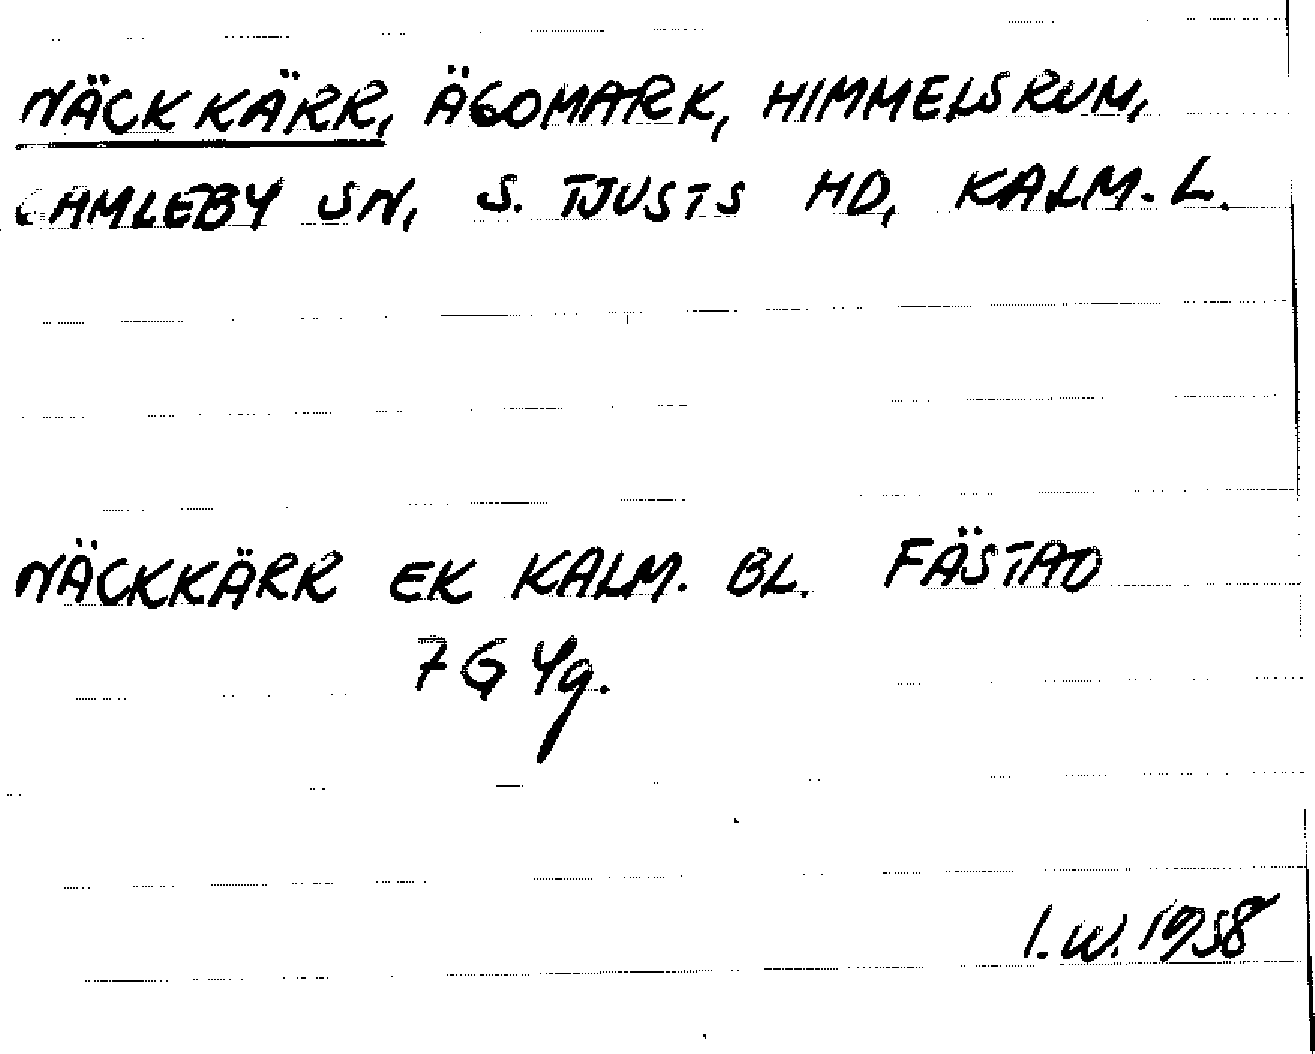 NÄCKKÄRR, ÄGOMARK, HIMMELSRUM,
GAMLEBY SN, S. TJUSTS HD, KALM. L.
NÄCKKÄRR EK KALM. BL. FÄSTAD
7G 4g.
I.W. 1958